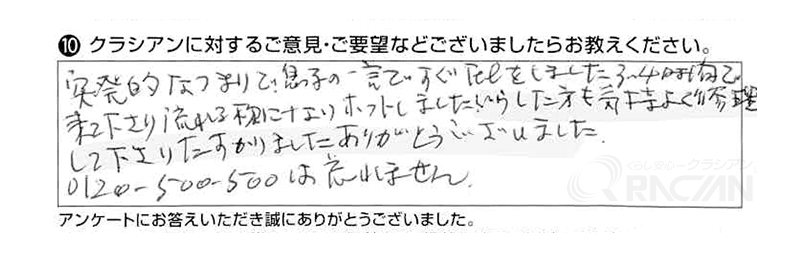 ⑩ クラシアンに対するご意見・ご要望などございましたらお教えください。
突発的なつまりで、息子の一言ですぐTelをしました。3〜4時間で
来て下さり流れる様になりホットしました。いらした方も気持よく修理
して下さりたすかりました。ありがとうございました。
0120-500-500は忘れません。
くらし安心クラシアン
QRACIAN
アンケートにお答えいただき誠にありがとうございました。